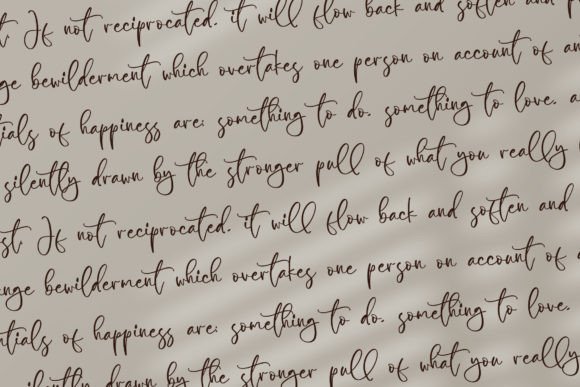 t. If not reciprocated. it will flow back and soften and
nge bewilderment which overtakes one person on account of an
tials of happiness are: something to do. something to love. a
silently drawn by the stronger pull of what you really
st. If not reciprocated. it will flow back and soften and
nge bewilderment which overtakes one person on account of a
ntials of happiness are: something to do. something to love.
silently drawn by the stronger pull of what you really